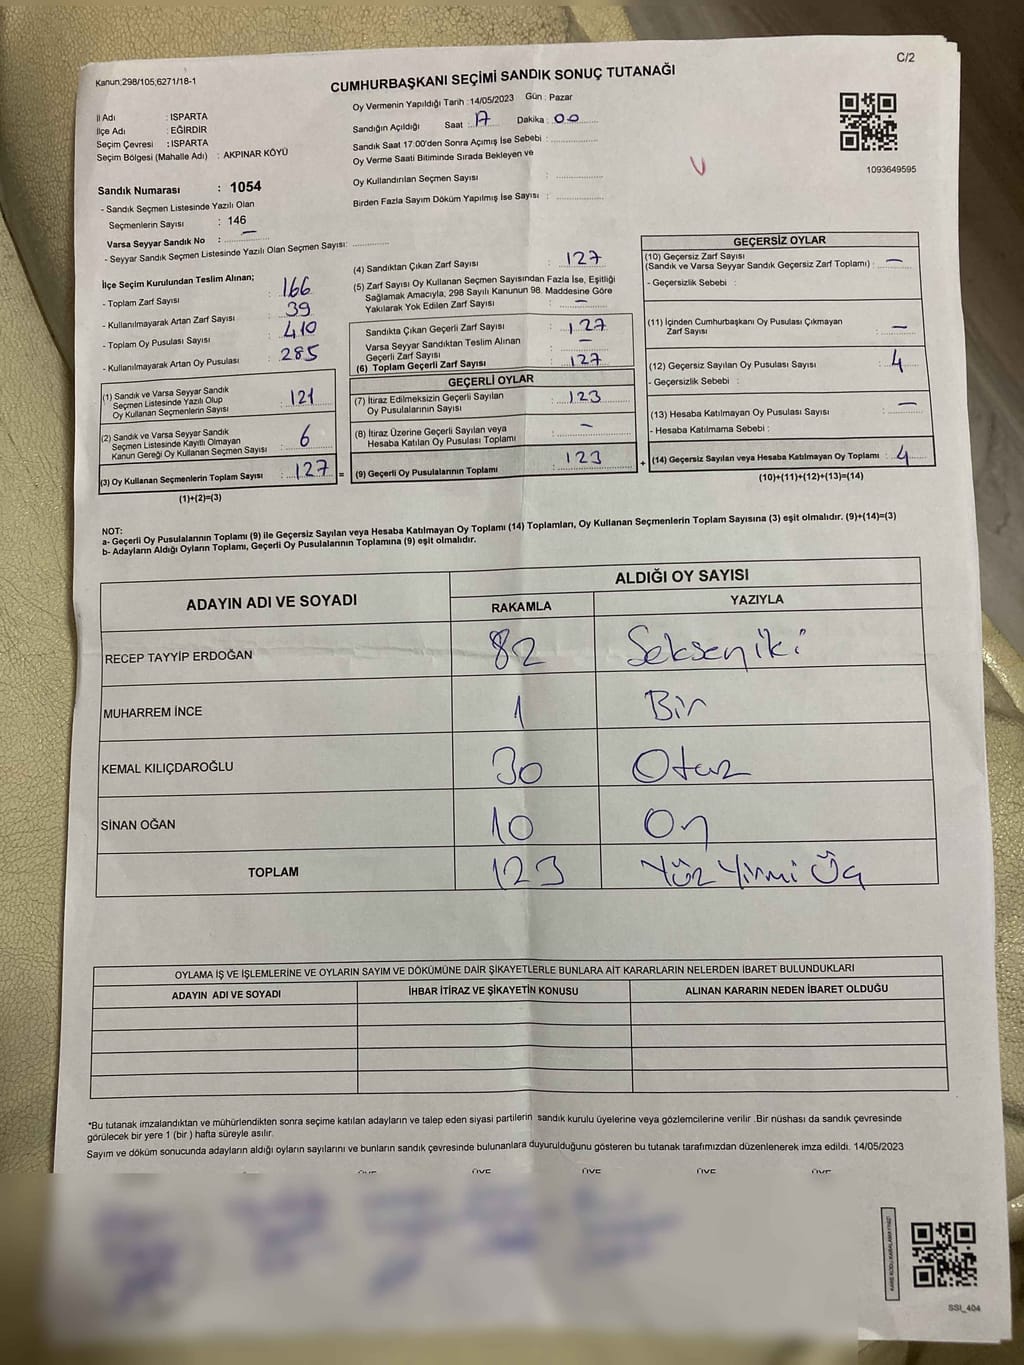 C/2
Kanun:298/105,6271/18-1
CUMHURBAŞKANI SEÇİMİ SANDIK SONUÇ TUTANAĞI
İl Adı : ISPARTA
İlçe Adı : EĞİRDİR
Seçim Çevresi : ISPARTA
Seçim Bölgesi (Mahalle Adı) : AKPINAR KÖYÜ
Sandık Numarası : 1054
- Sandık Seçmen Listesinde Yazılı Olan
Seçmenlerin Sayısı : 146
Varsa Seyyar Sandık No : —
- Seyyar Sandık Seçmen Listesinde Yazılı Olan Seçmen Sayısı:
Oy Vermenin Yapıldığı Tarih : 14/05/2023 Gün : Pazar
Sandığın Açıldığı Saat : 17 Dakika : 00
Sandık Saat 17:00'den Sonra Açımış İse Sebebi :
Oy Verme Saati Bitiminde Sırada Bekleyen ve
Oy Kullandırılan Seçmen Sayısı :
Birden Fazla Sayım Döküm Yapılmış İse Sayısı :
1093649595
İlçe Seçim Kurulundan Teslim Alınan;
- Toplam Zarf Sayısı : 166
- Kullanılmayarak Artan Zarf Sayısı : 39
- Toplam Oy Pusulası Sayısı : 410
- Kullanılmayarak Artan Oy Pusulası : 285
(1) Sandık ve Varsa Seyyar Sandık
Seçmen Listesinde Yazılı Olup
Oy Kullanan Seçmenlerin Sayısı : 121
(2) Sandık ve Varsa Seyyar Sandık
Seçmen Listesinde Kayıtlı Olmayan
Kanun Gereği Oy Kullanan Seçmen Sayısı : 6
(3) Oy Kullanan Seçmenlerin Toplam Sayısı : 127 =
(1)+(2)=(3)
(4) Sandıktan Çıkan Zarf Sayısı : 127
(5) Zarf Sayısı Oy Kullanan Seçmen Sayısından Fazla İse, Eşitliği
Sağlamak Amacıyla; 298 Sayılı Kanunun 98. Maddesine Göre
Yakılarak Yok Edilen Zarf Sayısı : —
Sandıkta Çıkan Geçerli Zarf Sayısı : 127
Varsa Seyyar Sandıktan Teslim Alınan
Geçerli Zarf Sayısı : —
(6) Toplam Geçerli Zarf Sayısı : 127
GEÇERLİ OYLAR
(7) İtiraz Edilmeksizin Geçerli Sayılan
Oy Pusulalarının Sayısı : 123
(8) İtiraz Üzerine Geçerli Sayılan veya
Hesaba Katılan Oy Pusulası Toplamı : —
(9) Geçerli Oy Pusulalarının Toplamı : 123 +
GEÇERSİZ OYLAR
(10) Geçersiz Zarf Sayısı
(Sandık ve Varsa Seyyar Sandık Geçersiz Zarf Toplamı) : —
- Geçersizlik Sebebi :
(11) İçinden Cumhurbaşkanı Oy Pusulası Çıkmayan
Zarf Sayısı : —
(12) Geçersiz Sayılan Oy Pusulası Sayısı : 4
- Geçersizlik Sebebi :
(13) Hesaba Katılmayan Oy Pusulası Sayısı : —
- Hesaba Katılmama Sebebi :
(14) Geçersiz Sayılan veya Hesaba Katılmayan Oy Toplamı : 4
(10)+(11)+(12)+(13)=(14)
NOT:
a- Geçerli Oy Pusulalarının Toplamı (9) ile Geçersiz Sayılan veya Hesaba Katılmayan Oy Toplamı (14) Toplamları, Oy Kullanan Seçmenlerin Toplam Sayısına (3) eşit olmalıdır. (9)+(14)=(3)
b- Adayların Aldığı Oyların Toplamı, Geçerli Oy Pusulalarının Toplamına (9) eşit olmalıdır.
ADAYIN ADI VE SOYADI ALDIĞI OY SAYISI
RAKAMLA YAZIYLA
RECEP TAYYİP ERDOĞAN 82 Sekseniki
MUHARREM İNCE 1 Bir
KEMAL KILIÇDAROĞLU 30 Otuz
SİNAN OĞAN 10 On
TOPLAM 123 Yüz Yirmi Üç
OYLAMA İŞ VE İŞLEMLERİNE VE OYLARIN SAYIM VE DÖKÜMÜNE DAİR ŞİKAYETLERLE BUNLARA AİT KARARLARIN NELERDEN İBARET BULUNDUKLARI
ADAYIN ADI VE SOYADI İHBAR İTİRAZ VE ŞİKAYETİN KONUSU ALINAN KARARIN NEDEN İBARET OLDUĞU
*Bu tutanak imzalandıktan ve mühürlendikten sonra seçime katılan adayların ve talep eden siyasi partilerin sandık kurulu üyelerine veya gözlemcilerine verilir .Bir nüshası da sandık çevresinde
görülecek bir yere 1 (bir ) hafta süreyle asılır.
Sayım ve döküm sonucunda adayların aldığı oyların sayılarını ve bunların sandık çevresinde bulunanlara duyurulduğunu gösteren bu tutanak tarafımızdan düzenlenerek imza edildi. 14/05/2023
ÜYE ÜYE ÜYE ÜYE ÜYE
SSI_404